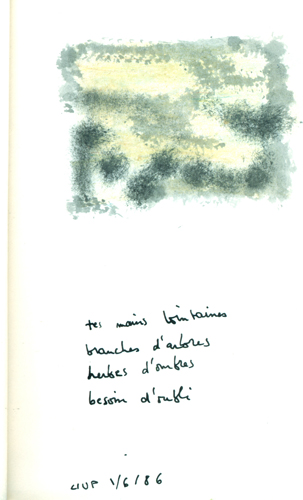 tes mains lointaines
branches d'arbres
herbes d'ombres
besoin d'oubli
1/6/86